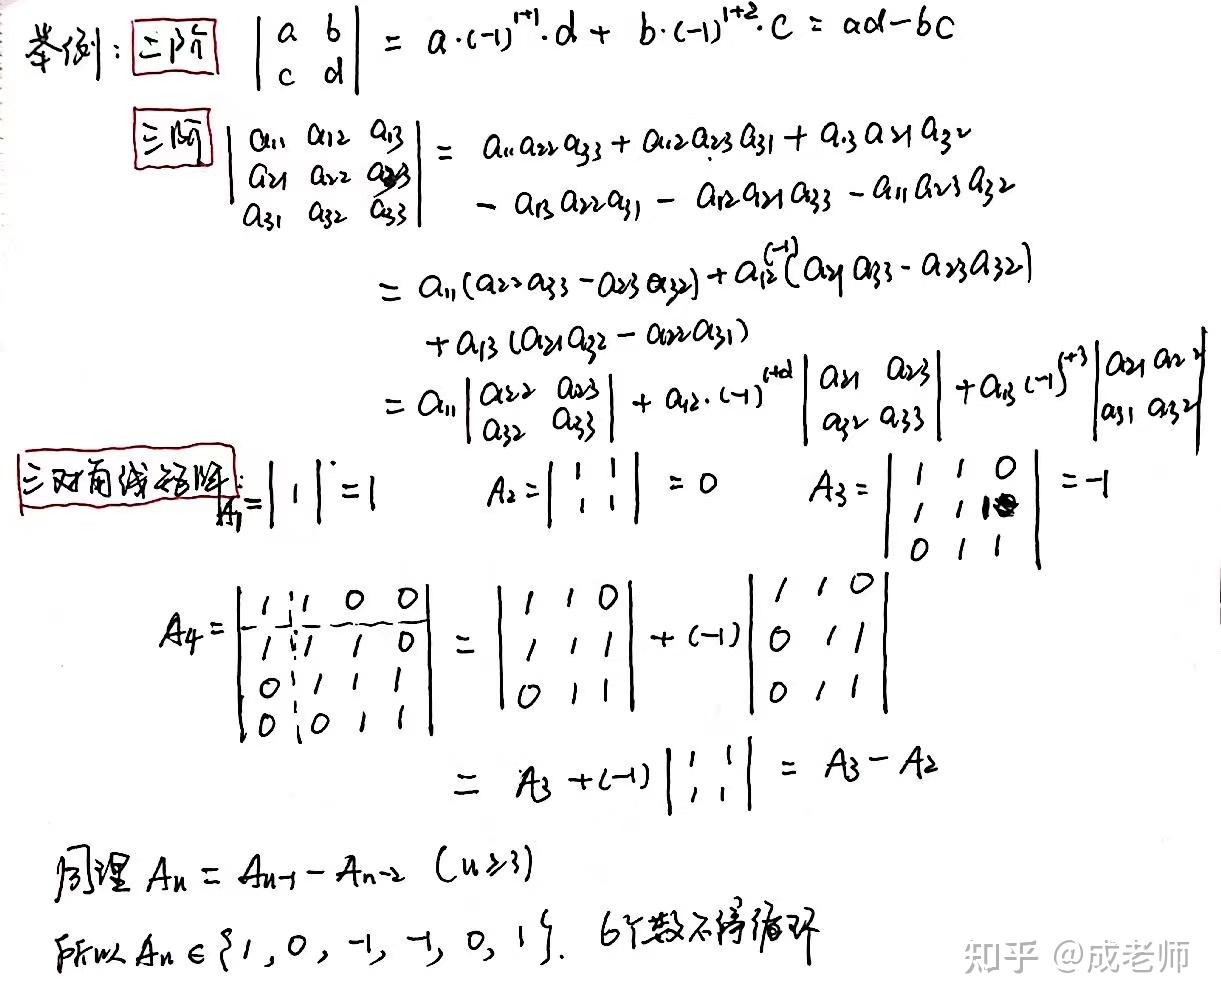 举例: 二阶 | a b ; c d | = a·(-1)^{1+1}·d + b·(-1)^{1+2}·c = ad-bc
三阶 | a11 a12 a13 ; a21 a22 a23 ; a31 a32 a33 | = a11a22a33 + a12a23a31 + a13a21a32
- a13a22a31 - a12a21a33 - a11a23a32
= a11(a22a33 - a23a32) + a12(-1)(a21a33 - a23a32)
+ a13(a21a32 - a22a31)
= a11 | a22 a23 ; a32 a33 | + a12·(-1)^{1+2} | a21 a23 ; a32 a33 | + a13(-1)^{1+3} | a21 a22 ; a31 a32 |
三对角线矩阵: A1 = | 1 | = 1 A2 = | 1 1 ; 1 1 | = 0 A3 = | 1 1 0 ; 1 1 1 ; 0 1 1 | = -1
A4 = | 1 1 0 0 ; 1 1 1 0 ; 0 1 1 1 ; 0 0 1 1 | = | 1 1 0 ; 1 1 1 ; 0 1 1 | + (-1) | 1 1 0 ; 0 1 1 ; 0 1 1 |
= A3 + (-1) | 1 1 ; 1 1 | = A3 - A2
同理 An = An-1 - An-2 (n≥3)
所以 An ∈ {1, 0, -1, -1, 0, 1}. 6个数不停循环
知乎 @成老师